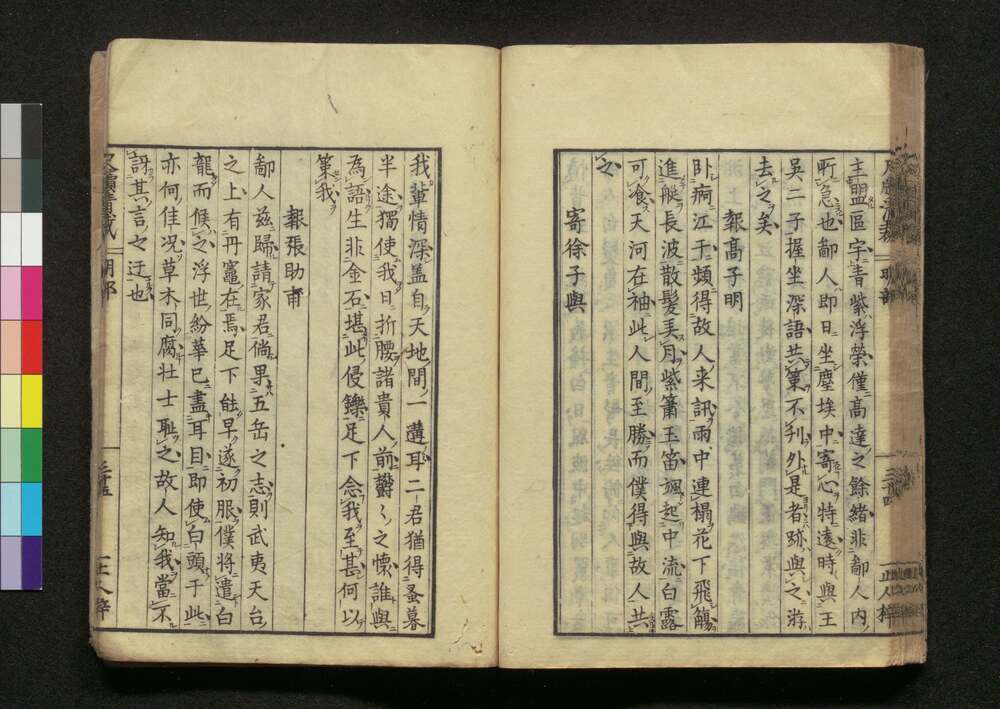 主盟區字青紫浮榮僅高達之餘緒非鄙人内
所急也鄙人即日坐塵埃中寄心特遠時與王
吳二子握坐深語共策不刋外是者跡與之游
去之矣
報高子明
卧痾江干頻得故人来訊雨中連榻花下飛觴
進艇長波散髪弄月紫簫玉笛颯起中流白露
可食天河在袖此人間至勝而僕得與故人共
之
寄徐子與
我輩情深盖自天地間一蕁耳二君猶得蚤暮
半途獨使我日折腰諸貴人前欝〻之懷誰與
為語生非金石堪此侵鑠足下念我至甚何以
策我
報張助甫
鄙人玆歸請家君倘果五岳之志則武夷天台
之上有丹竈在焉足下能早遂初服僕將遣白
龍而候之浮世紛華已盡耳目即使白頭于此
亦何佳况草木同腐壮士恥之故人知我當不
訝其言之迂也